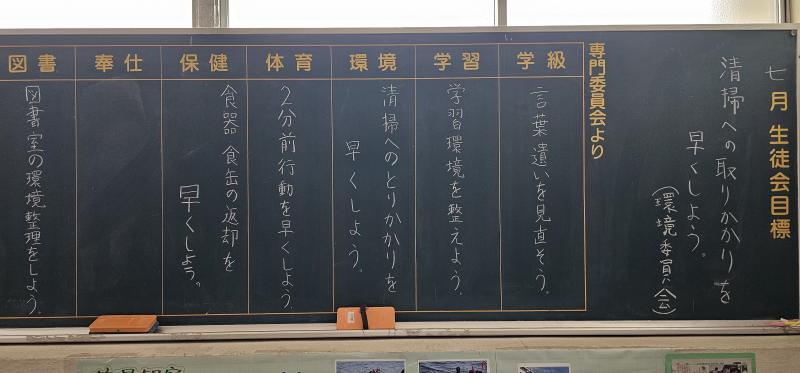 七月 生徒会目標
清掃への取りかかりを
早くしよう。
(環境委員会)
専門委員会より
学級
言葉遣いを見直そう。
学習
学習環境を整えよう。
環境
清掃へのとりかかりを
早くしよう。
体育
2分前行動を早くしよう。
保健
食器 食缶の返却を
早くしよう。
奉仕
図書
図書室の環境整理をしよう。